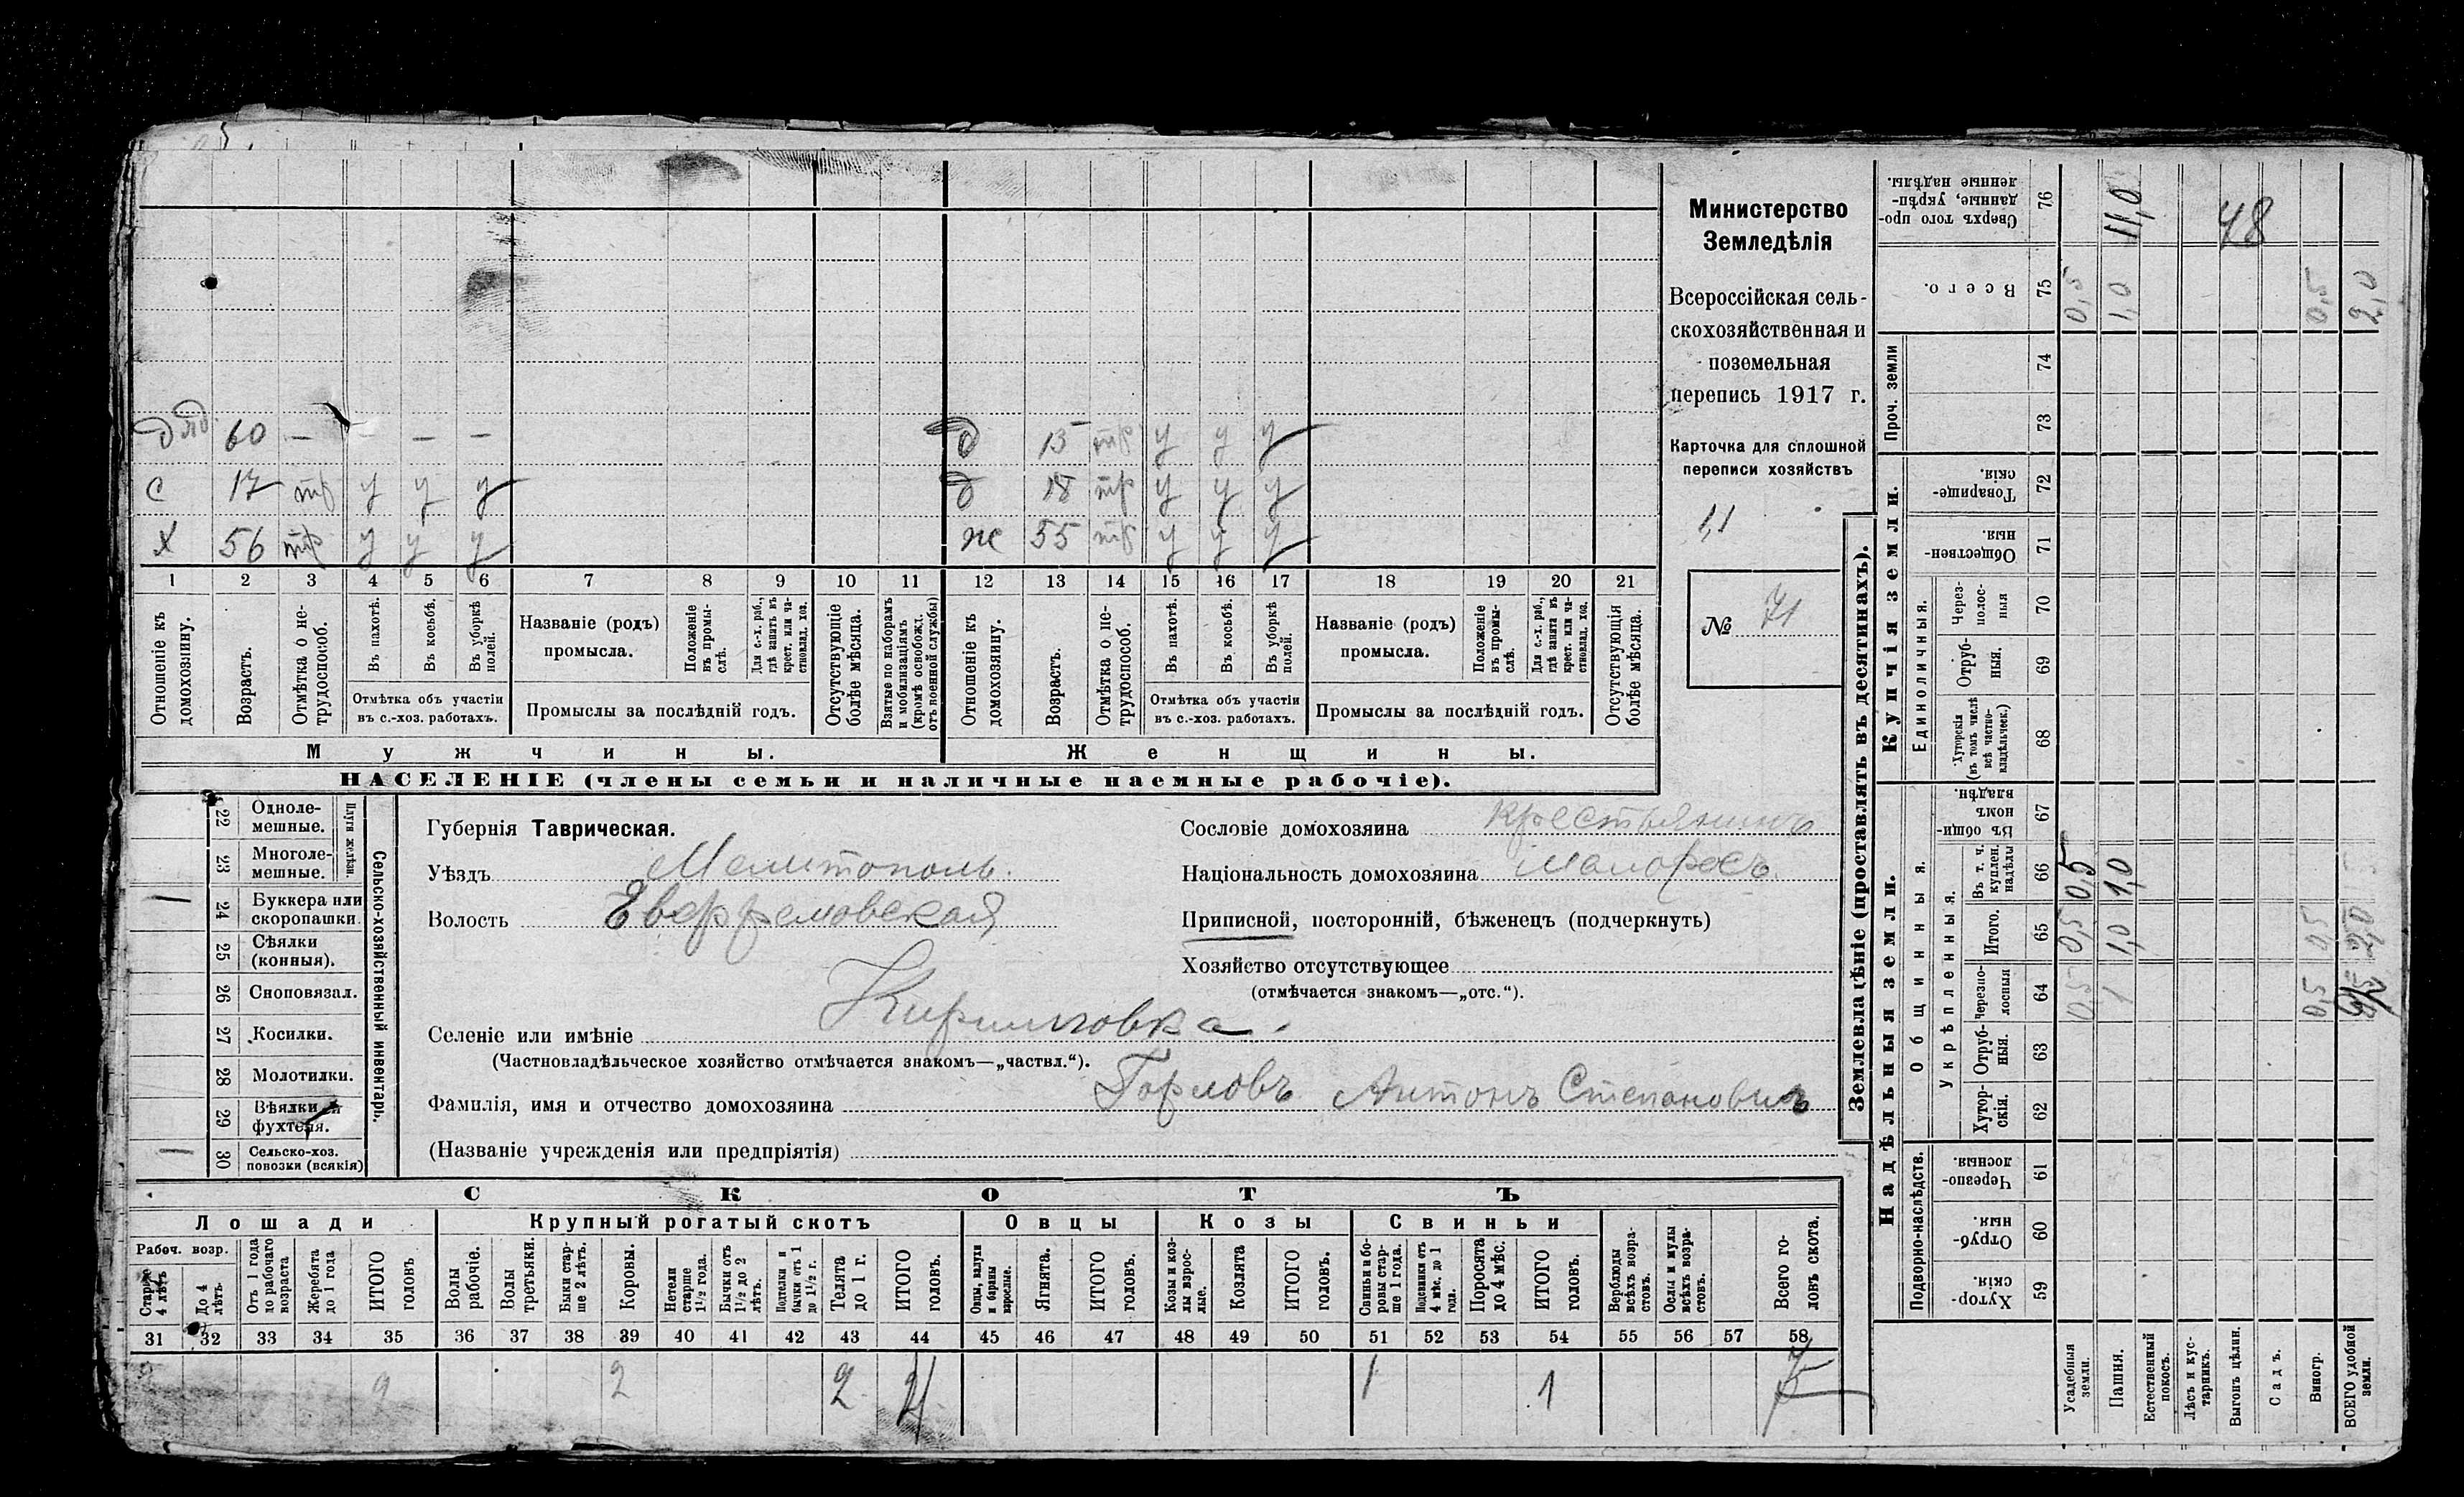 Министерство
Земледѣлія
Всероссійская сель-
скохозяйственная и
поземельная
перепись 1917 г.
Карточка для сплошной
переписи хозяйствъ
1,1
№ 71
дяд 60 — — — —
с 17 тр у у у
х 56 тр у у у
д 15 тр у у у
д 18 тр у у у
ж 55 тр у у у
1 2 3 4 5 6 7 8 9 10 11 12 13 14 15 16 17 18 19 20 21
Отношеніе къ домохозяину.
Возрастъ.
Отмѣтка о не-трудоспособ.
Въ пахотѣ.
Въ косьбѣ.
Въ уборкѣ полей.
Отмѣтка объ участіи
въ с.-хоз. работахъ.
Названіе (родъ)
промысла.
Положеніе въ промы-слѣ.
Для с.-х. раб., гдѣ занятъ въ крест. или ча-стновлад. хоз.
Промыслы за послѣдній годъ.
Отсутствующіе болѣе мѣсяца.
Взятые по наборамъ и мобилизаціямъ (кромѣ освобожд. отъ военной службы)
Отношеніе къ домохозяину.
Возрастъ.
Отмѣтка о не-трудоспособ.
Въ пахотѣ.
Въ косьбѣ.
Въ уборкѣ полей.
Отмѣтка объ участіи
въ с.-хоз. работахъ.
Названіе (родъ)
промысла.
Положеніе въ промы-слѣ.
Для с.-х. раб., гдѣ занята въ крест. или ча-стновлад. хоз.
Промыслы за послѣдній годъ.
Отсутствующія болѣе мѣсяца.
Мужчины.
Женщины.
НАСЕЛЕНІЕ (члены семьи и наличные наемные рабочіе).
Сельско-хозяйственный инвентарь.
Плуги желѣзн.
22 Одноле-мешные.
23 Многоле-мешные.
24 Буккера или скоропашки. 1
25 Сѣялки (конныя).
26 Сноповязал.
27 Косилки.
28 Молотилки.
29 Вѣялки и фухтеля.
30 Сельско-хоз. повозки (всякія) 1
Губернія Таврическая.
Уѣздъ Мелитополь.
Волость
Селеніе или имѣніе Кирилловка.
(Частновладѣльческое хозяйство отмѣчается знакомъ—„частвл.“).
Фамилія, имя и отчество домохозяина Горловъ Антонъ Степановичъ
(Названіе учрежденія или предпріятія)
Сословіе домохозяина крестьянинъ
Національность домохозяина малоросъ
Приписной, посторонній, бѣженецъ (подчеркнуть)
Хозяйство отсутствующее
(отмѣчается знакомъ—„отс.“).
СКОТЪ
Лошади
Крупный рогатый скотъ
Овцы
Козы
Свиньи
Рабоч. возр.
Старше 4 лѣтъ
До 4 лѣтъ
Отъ 1 года до рабочаго возраста
Жеребята до 1 года
ИТОГО головъ
Волы рабочіе.
Волы третьяки.
Быки стар-ше 2 лѣтъ.
Коровы.
Нетели старше 1½ года.
Бычки отъ 1½ до 2 лѣтъ.
Подтелки и бычки отъ 1 до 1½ г.
Телята до 1 г.
ИТОГО головъ.
Овцы, валухи и бараны взрослые.
Ягнята.
ИТОГО головъ.
Козы и коз-лы взрос-лые.
Козлята
ИТОГО головъ.
Свиньи и бо-ровы стар-ше 1 года.
Подсвинки отъ 4 мѣс. до 1 года.
Поросята до 4 мѣс.
ИТОГО головъ.
Верблюды всѣхъ возра-стовъ.
Ослы и мулы всѣхъ возра-стовъ.
Всего го-ловъ скота.
31 32 33 34 35 36 37 38 39 40 41 42 43 44 45 46 47 48 49 50 51 52 53 54 55 56 57 58
2 2 2 2 4 1 1 7
Землевладѣніе (проставлять въ десятинахъ).
Купчія земли.
Надѣльныя земли.
Сверхъ того про-данные, укрѣп-ленные надѣлы. 76 11,0 48
Всего. 75 0,5 1,0 0,5 2,0
Проч. земли
74
73
Товарище-скія. 72
Обществен-ныя 71
Единоличныя.
Через-полос-ныя 70
Отруб-ныя. 69
Хуторскія (въ томъ числѣ всѣ частно-владѣльческ.) 68
Общинныя.
Въ общин-номъ владѣн. 67
Укрѣпленныя.
Въ т. ч. куплен. надѣлы 66 0,5 1,0
Итого. 65 0,5 1,0 0,5 2,0
Черезпо-лосныя 64 0,5 1 0,5
Отруб-ныя. 63
Хутор-скія. 62
Подворно-наслѣдств.
Черезпо-лосныя. 61
Отруб-ныя. 60
Хутор-скія. 59
Усадебныя земли.
Пашня.
Естественный покосъ.
Лѣсъ и кус-тарникъ.
Выгонъ цѣлин.
Садъ.
Виногр.
ВСЕГО удобной земли.